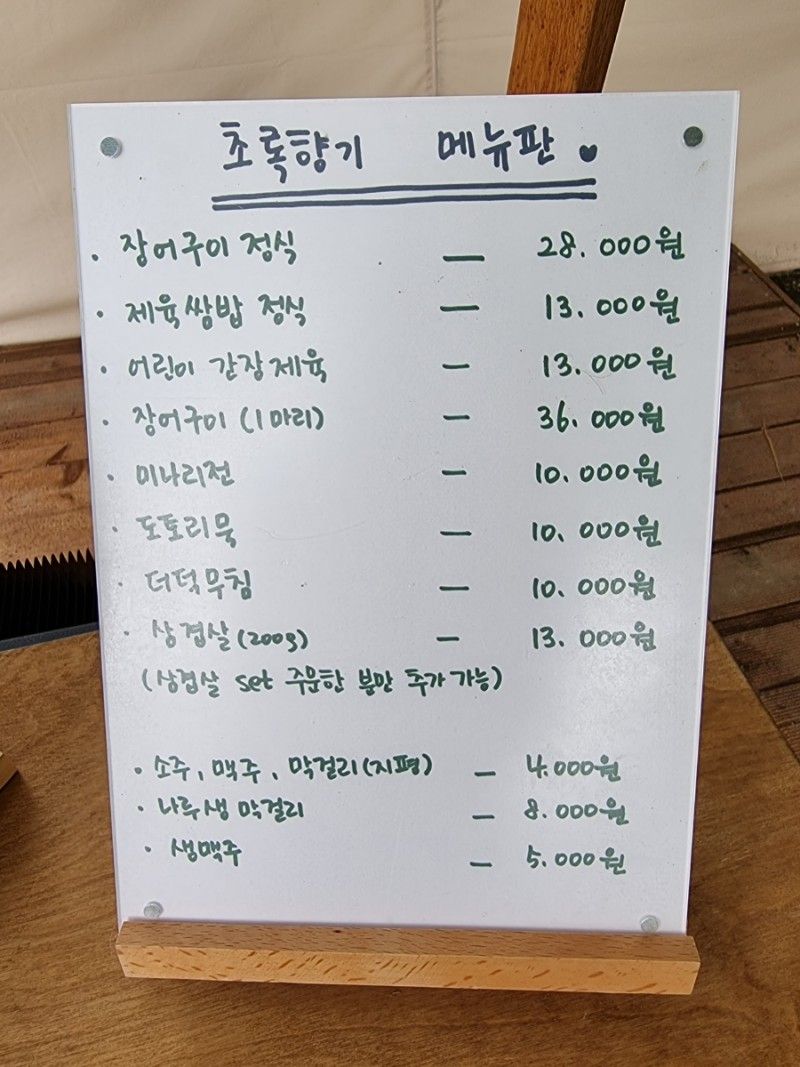 초록향기 메뉴판
· 장어구이 정식 — 28.000원
· 제육쌈밥 정식 — 13.000원
· 어린이 간장제육 — 13.000원
· 장어구이 (1마리) — 36.000원
· 미나리전 — 10.000원
· 도토리묵 — 10.000원
· 더덕무침 — 10.000원
· 삼겹살 (200g) — 13.000원
(삼겹살 set 주문한 분만 추가 가능)
· 소주, 맥주, 막걸리(지평) — 4.000원
· 나루생 막걸리 — 8.000원
· 생맥주 — 5.000원